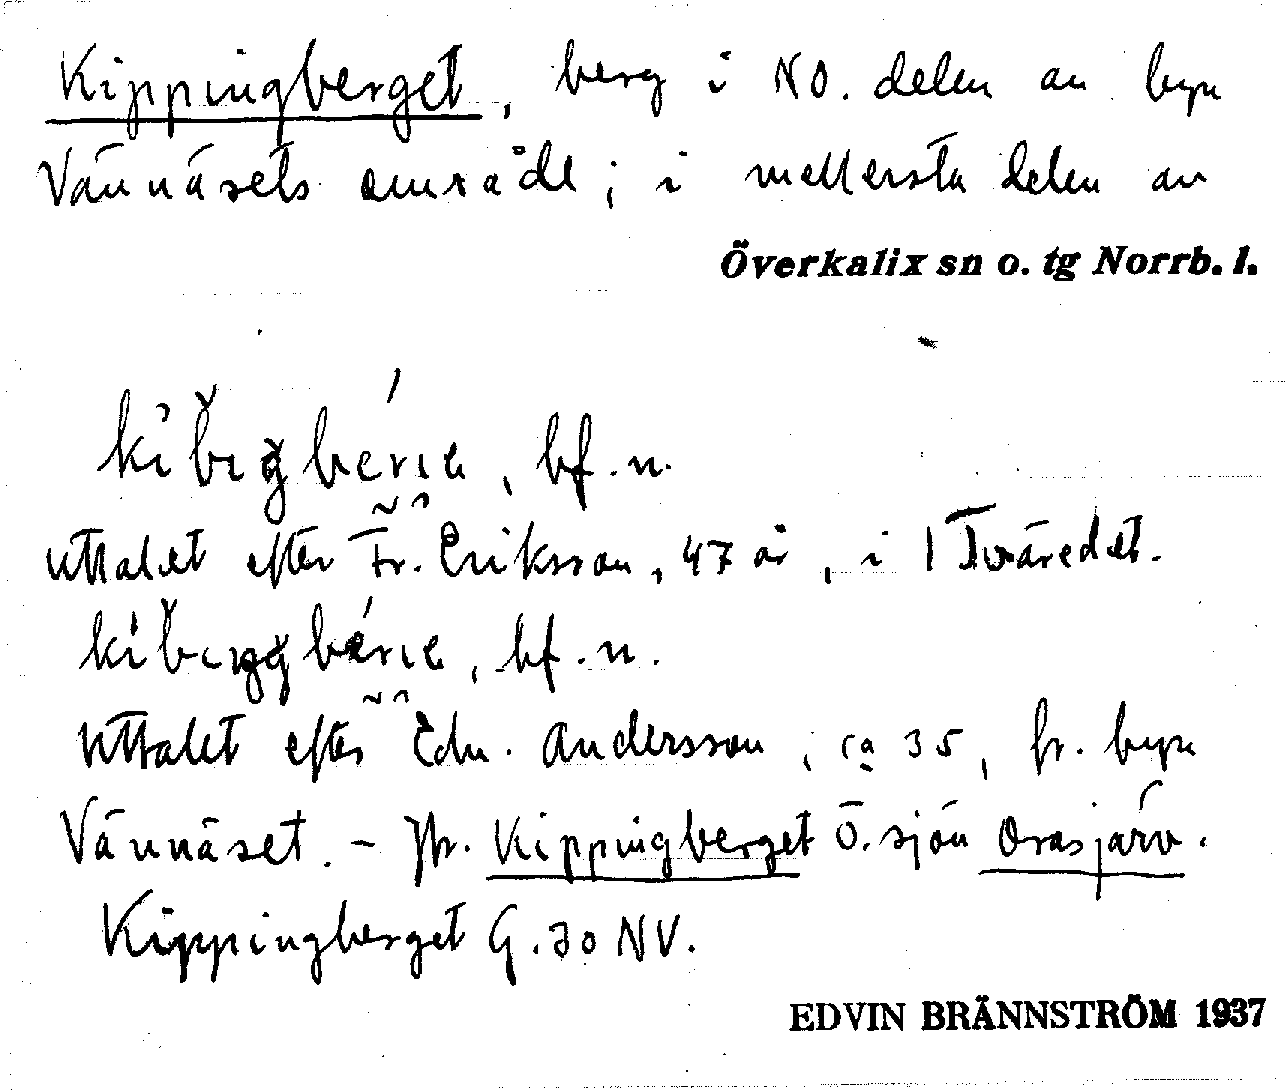 Kippingberget, berg i NO. delen av byn
Vännäsets område; i mellersta delen av
Överkalix sn o. tg Norrb. l.
bf. n.
uttalet efter Fr. Eriksson, 47 år, i Tväredet.
bf. n.
Uttalet efter Edv. Andersson, ca 35, fr. byn
Vännäset. - Jfr. Kippingberget Ö. sjön Orasjärv.
Kippingberget G. 30 NV.
EDVIN BRÄNNSTRÖM 1937